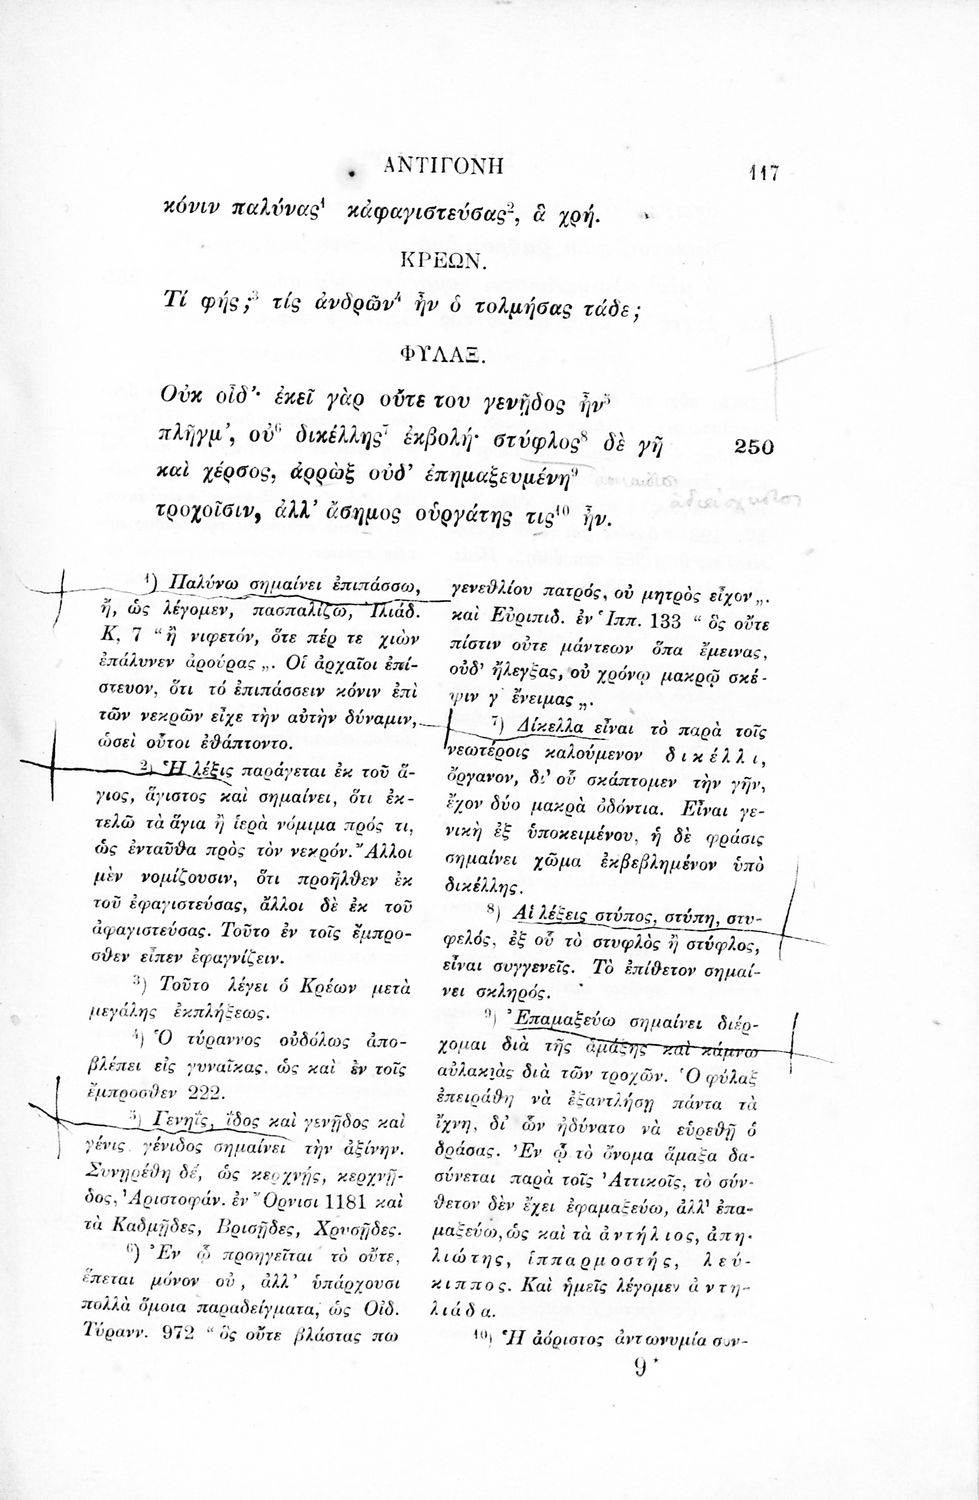 ΑΝΤΙΓΟΝΗ 117
κόνιν παλύνας¹ κἀφαγιστεύσας², ἃ χρή.
ΚΡΕΩΝ.
Τί φής;³ τίς ἀνδρῶν⁴ ἦν ὁ τολμήσας τάδε;
ΦΥΛΑΞ.
Οὐκ οἶδ'· ἐκεῖ γὰρ οὔτε του γενῇδος ἦν⁵
πλῆγμ', οὐ⁶ δικέλλης⁷ ἐκβολή· στύφλος⁸ δὲ γῆ 250
καὶ χέρσος, ἀρρὼξ οὐδ' ἐπημαξευμένη⁹
ἀδιάσχιστος
τροχοῖσιν, ἀλλ' ἄσημος οὑργάτης τις¹⁰ ἦν.
¹) Παλύνω σημαίνει ἐπιπάσσω,
ἤ, ὡς λέγομεν, πασπαλίζω, Ἰλιάδ.
Κ, 7 “ἢ νιφετόν, ὅτε πέρ τε χιὼν
ἐπάλυνεν ἀρούρας„. Οἱ ἀρχαῖοι ἐπί-
στευον, ὅτι τό ἐπιπάσσειν κόνιν ἐπὶ
τῶν νεκρῶν εἶχε τὴν αὐτὴν δύναμιν,
ὡσεὶ οὗτοι ἐθάπτοντο.
²) Ἡ λέξις παράγεται ἐκ τοῦ ἅ-
γιος, ἅγιστος καὶ σημαίνει, ὅτι ἐκ-
τελῶ τὰ ἅγια ἢ ἱερὰ νόμιμα πρός τι,
ὡς ἐνταῦθα πρὸς τὸν νεκρόν. Ἄλλοι
μὲν νομίζουσιν, ὅτι προῆλθεν ἐκ
τοῦ ἐφαγιστεύσας, ἄλλοι δὲ ἐκ τοῦ
ἀφαγιστεύσας. Τοῦτο ἐν τοῖς ἔμπρο-
σθεν εἶπεν ἐφαγνίζειν.
³) Τοῦτο λέγει ὁ Κρέων μετὰ
μεγάλης ἐκπλήξεως.
⁴) Ὁ τύραννος οὐδόλως ἀπο-
βλέπει εἰς γυναῖκας, ὡς καὶ ἐν τοῖς
ἔμπροσθεν 222.
⁵) Γενηΐς, ΐδος καὶ γενῇδος καὶ
γένις γένιδος σημαίνει τὴν ἀξίνην.
Συνῃρέθη δέ, ὡς κερχνής, κερχνῇ-
δος, Ἀριστοφάν. ἐν Ὄρνισι 1181 καὶ
τὰ Καδμῇδες, Βρισῇδες, Χρυσῇδες.
⁶) Ἐν ᾧ προηγεῖται τὸ οὔτε,
ἕπεται μόνον οὐ, ἀλλ' ὑπάρχουσι
πολλὰ ὅμοια παραδείγματα, ὡς Οἰδ.
Τύρανν. 972 “ὃς οὔτε βλάστας πω
γενεθλίου πατρός, οὐ μητρὸς εἶχον„.
καὶ Εὐριπιδ. ἐν Ἱππ. 133 “ὃς οὔτε
πίστιν οὔτε μάντεων ὄπα ἔμεινας,
οὐδ' ἤλεγξας, οὐ χρόνῳ μακρῷ σκέ-
ψιν γ' ἔνειμας„.
⁷) Δίκελλα εἶναι τὸ παρὰ τοῖς
νεωτέροις καλούμενον δικέλλι,
ὄργανον, δι' οὗ σκάπτομεν τὴν γῆν,
ἔχον δύο μακρὰ ὀδόντια. Εἶναι γε-
νικὴ ἐξ ὑποκειμένου, ἡ δὲ φράσις
σημαίνει χῶμα ἐκβεβλημένον ὑπὸ
δικέλλης.
⁸) Αἱ λέξεις στύπος, στύπη, στυ-
φελός, ἐξ οὗ τὸ στυφλὸς ἢ στύφλος,
εἶναι συγγενεῖς. Τὸ ἐπίθετον σημαί-
νει σκληρός.
⁹) Ἐπαμαξεύω σημαίνει διέρ-
χομαι διὰ τῆς ἁμάξης καὶ κάμνω
αὐλακιὰς διὰ τῶν τροχῶν. Ὁ φύλαξ
ἐπειράθη νὰ ἐξαντλήσῃ πάντα τὰ
ἴχνη, δι' ὧν ἠδύνατο νὰ εὑρεθῇ ὁ
δράσας. Ἐν ᾧ τὸ ὄνομα ἅμαξα δα-
σύνεται παρὰ τοῖς Ἀττικοῖς, τὸ σύν-
θετον δὲν ἔχει ἐφαμαξεύω, ἀλλ' ἐπα-
μαξεύω, ὡς καὶ τὰ ἀντήλιος, ἀπη-
λιώτης, ἱππαρμοστής, λεύ-
κιππος. Καὶ ἡμεῖς λέγομεν ἀντη-
λιάδα.
¹⁰) Ἡ ἀόριστος ἀντωνυμία συν-
9*